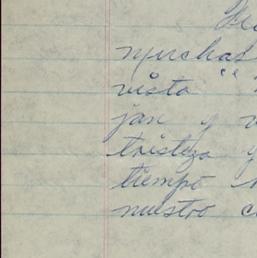 muchas
vista "
jan y
tristeza y
tiempo
nuestro